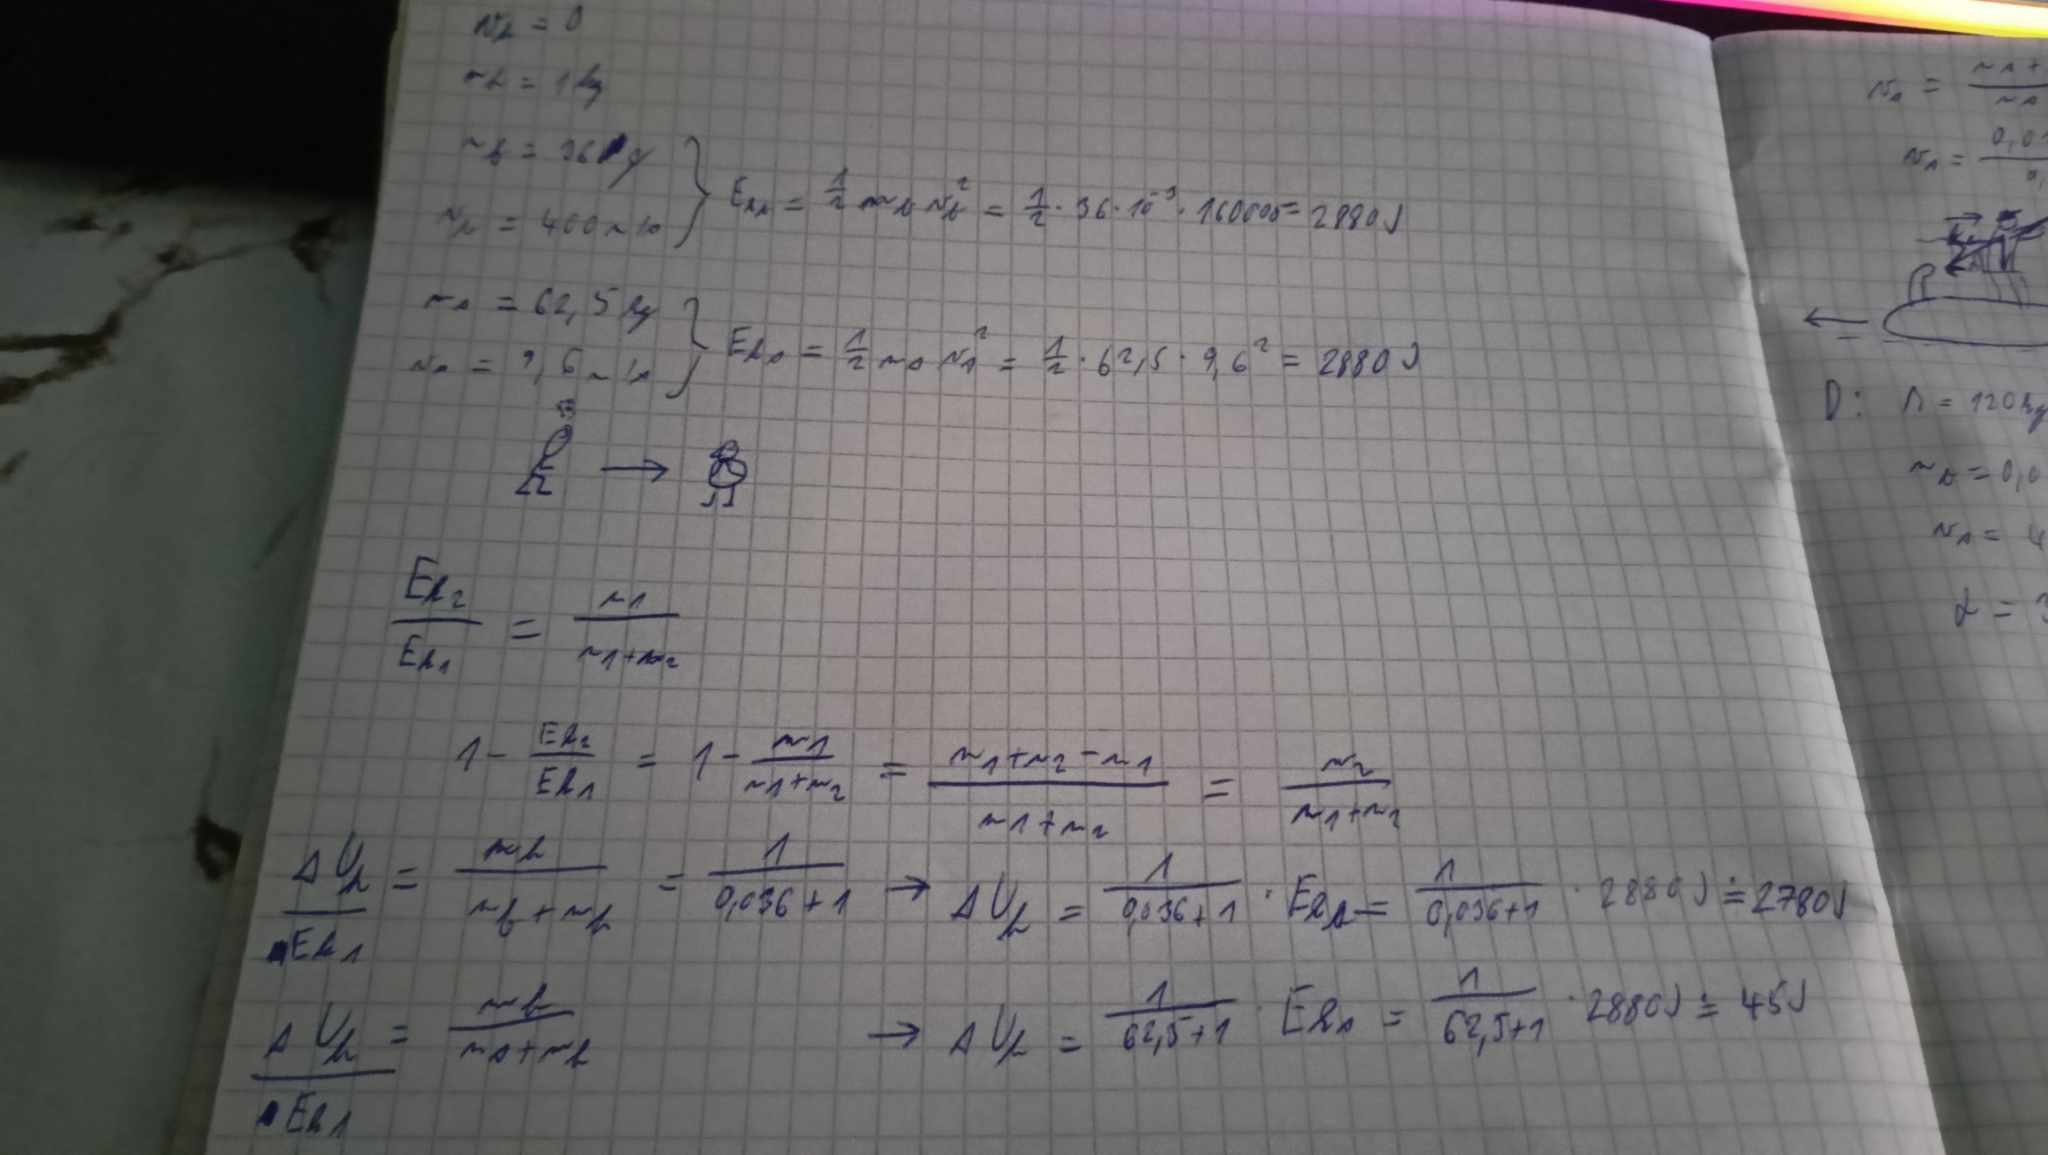 v_h = 0
m_h = 1 kg
m_b = 36 g
v_b = 400 m/s } E_k1 = 1/2 m_b v_b² = 1/2 · 36 · 10⁻³ · 160000 = 2880 J
m_A = 62,5 kg
v_A = 9,6 m/s } E_kA = 1/2 m_A v_A² = 1/2 · 62,5 · 9,6² = 2880 J
E_k2 / E_k1 = m1 / (m1+m2)
1 - E_k2 / E_k1 = 1 - m1 / (m1+m2) = (m1+m2-m1) / (m1+m2) = m2 / (m1+m2)
ΔU_h / E_k1 = m_h / (m_b+m_h) = 1 / (0,036+1) → ΔU_h = 1 / (0,036+1) · E_k1 = 1 / (0,036+1) · 2880 J ≐ 2780 J
ΔU_h / E_k1 = m_h / (m_A+m_h) → ΔU_h = 1 / (62,5+1) · E_kA = 1 / (62,5+1) · 2880 J ≐ 45 J
v_A =
v_A =
D: M = 120 kg
m_A = 0,0
v_A = 4
α = 3